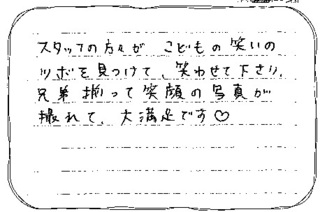 スタッフの方々が こどもの笑いの
ツボを見つけて、笑わせて下さり、
兄弟揃って笑顔の写真が
撮れて、大満足です♡